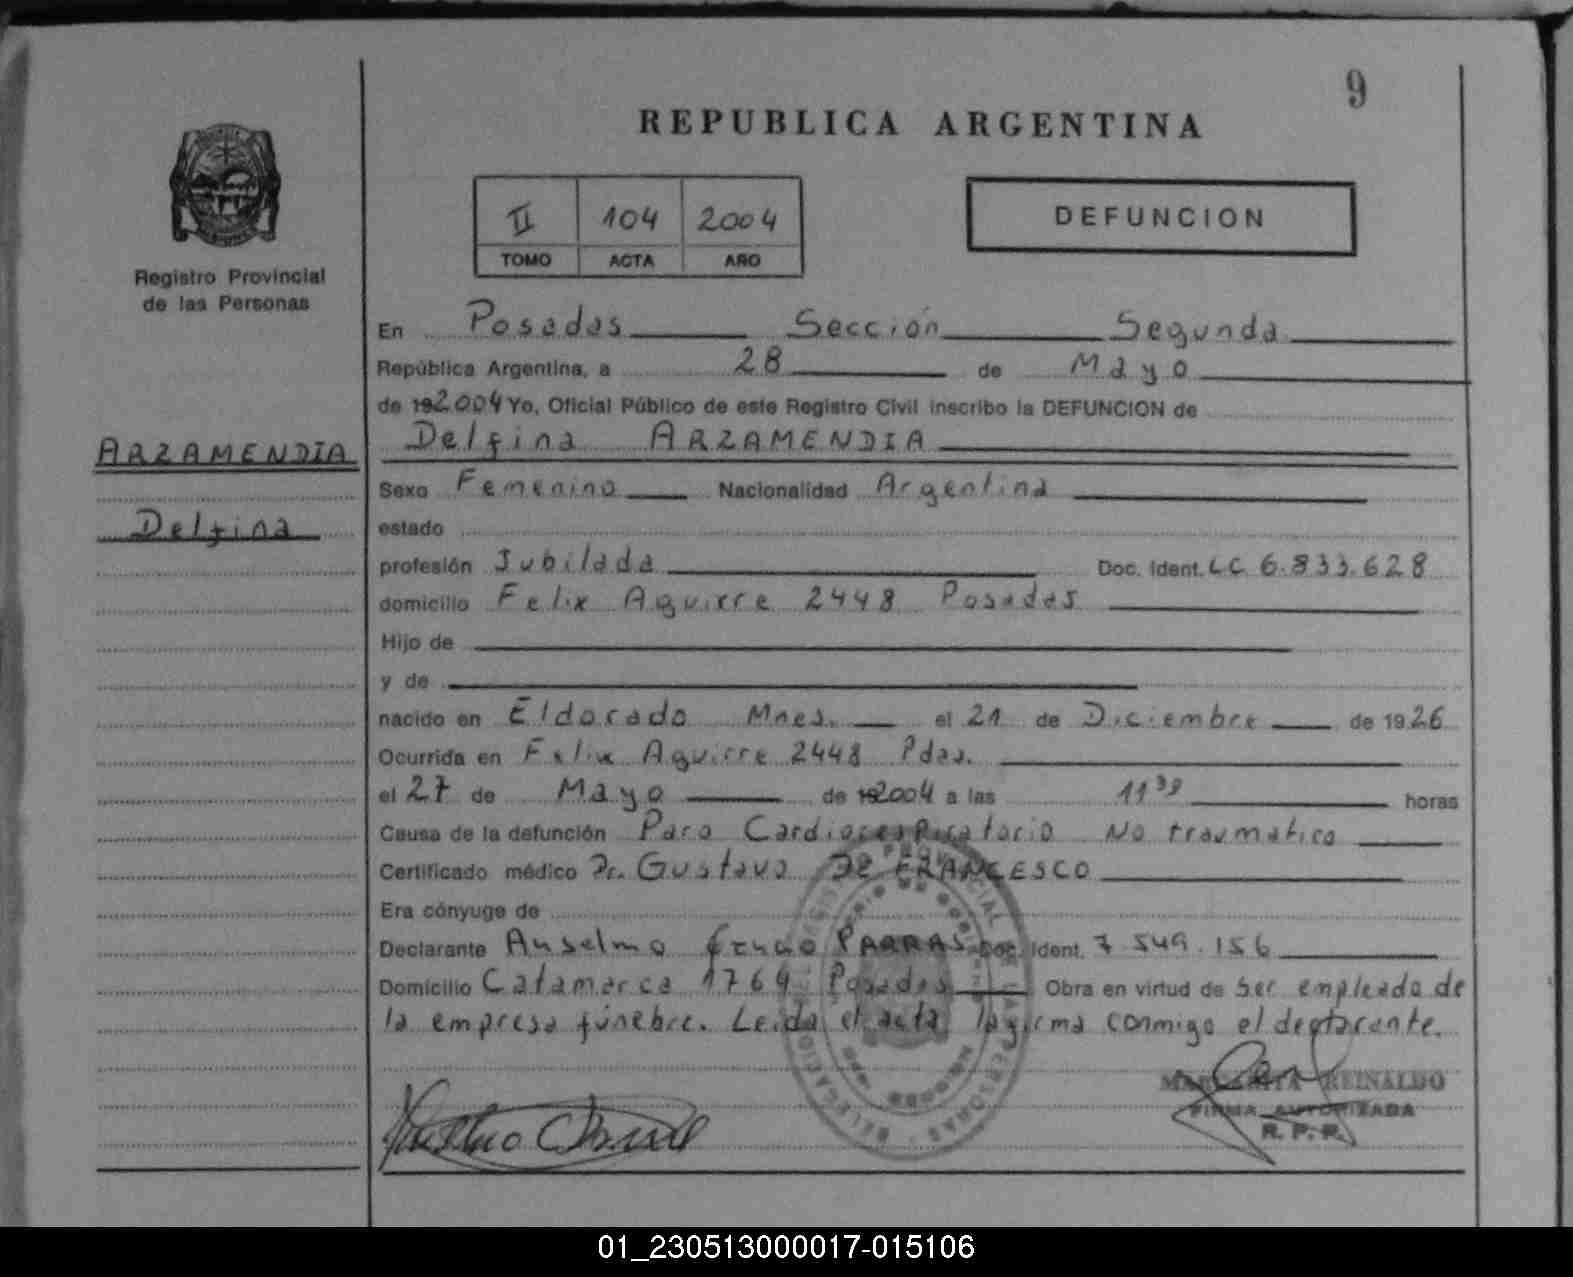 9
REPUBLICA ARGENTINA
II 104 2004
TOMO ACTA AÑO
DEFUNCION
Registro Provincial
de las Personas
ARZAMENDIA
Delfina
En Posadas Sección Segunda
República Argentina, a 28 de Mayo
de 192004 Yo, Oficial Público de este Registro Civil inscribo la DEFUNCION de
Delfina ARZAMENDIA
Sexo Femenino Nacionalidad Argentina
estado
profesión Jubilada Doc. Ident. LC 6.833.628
domicilio Felix Aguirre 2448 Posadas
Hijo de
y de
nacido en Eldorado Mnes. el 21 de Diciembre de 1926
Ocurrida en Felix Aguirre 2448 Pdas.
el 27 de Mayo de 192004 a las 11 horas
Causa de la defunción Paro Cardiorespiratorio No traumatico
Certificado médico Dr. Gustavo DE FRANCESCO
Era cónyuge de
Declarante Anselmo PARRAS Doc. Ident. 7.549.156
Domicilio Catamarca 1769 Posadas Obra en virtud de ser empleado de
la empresa fúnebre. Leida el acta la firma conmigo el declarante.
MARGARITA REINALDO
FIRMA AUTORIZADA
R. P. P.
01_230513000017-015106